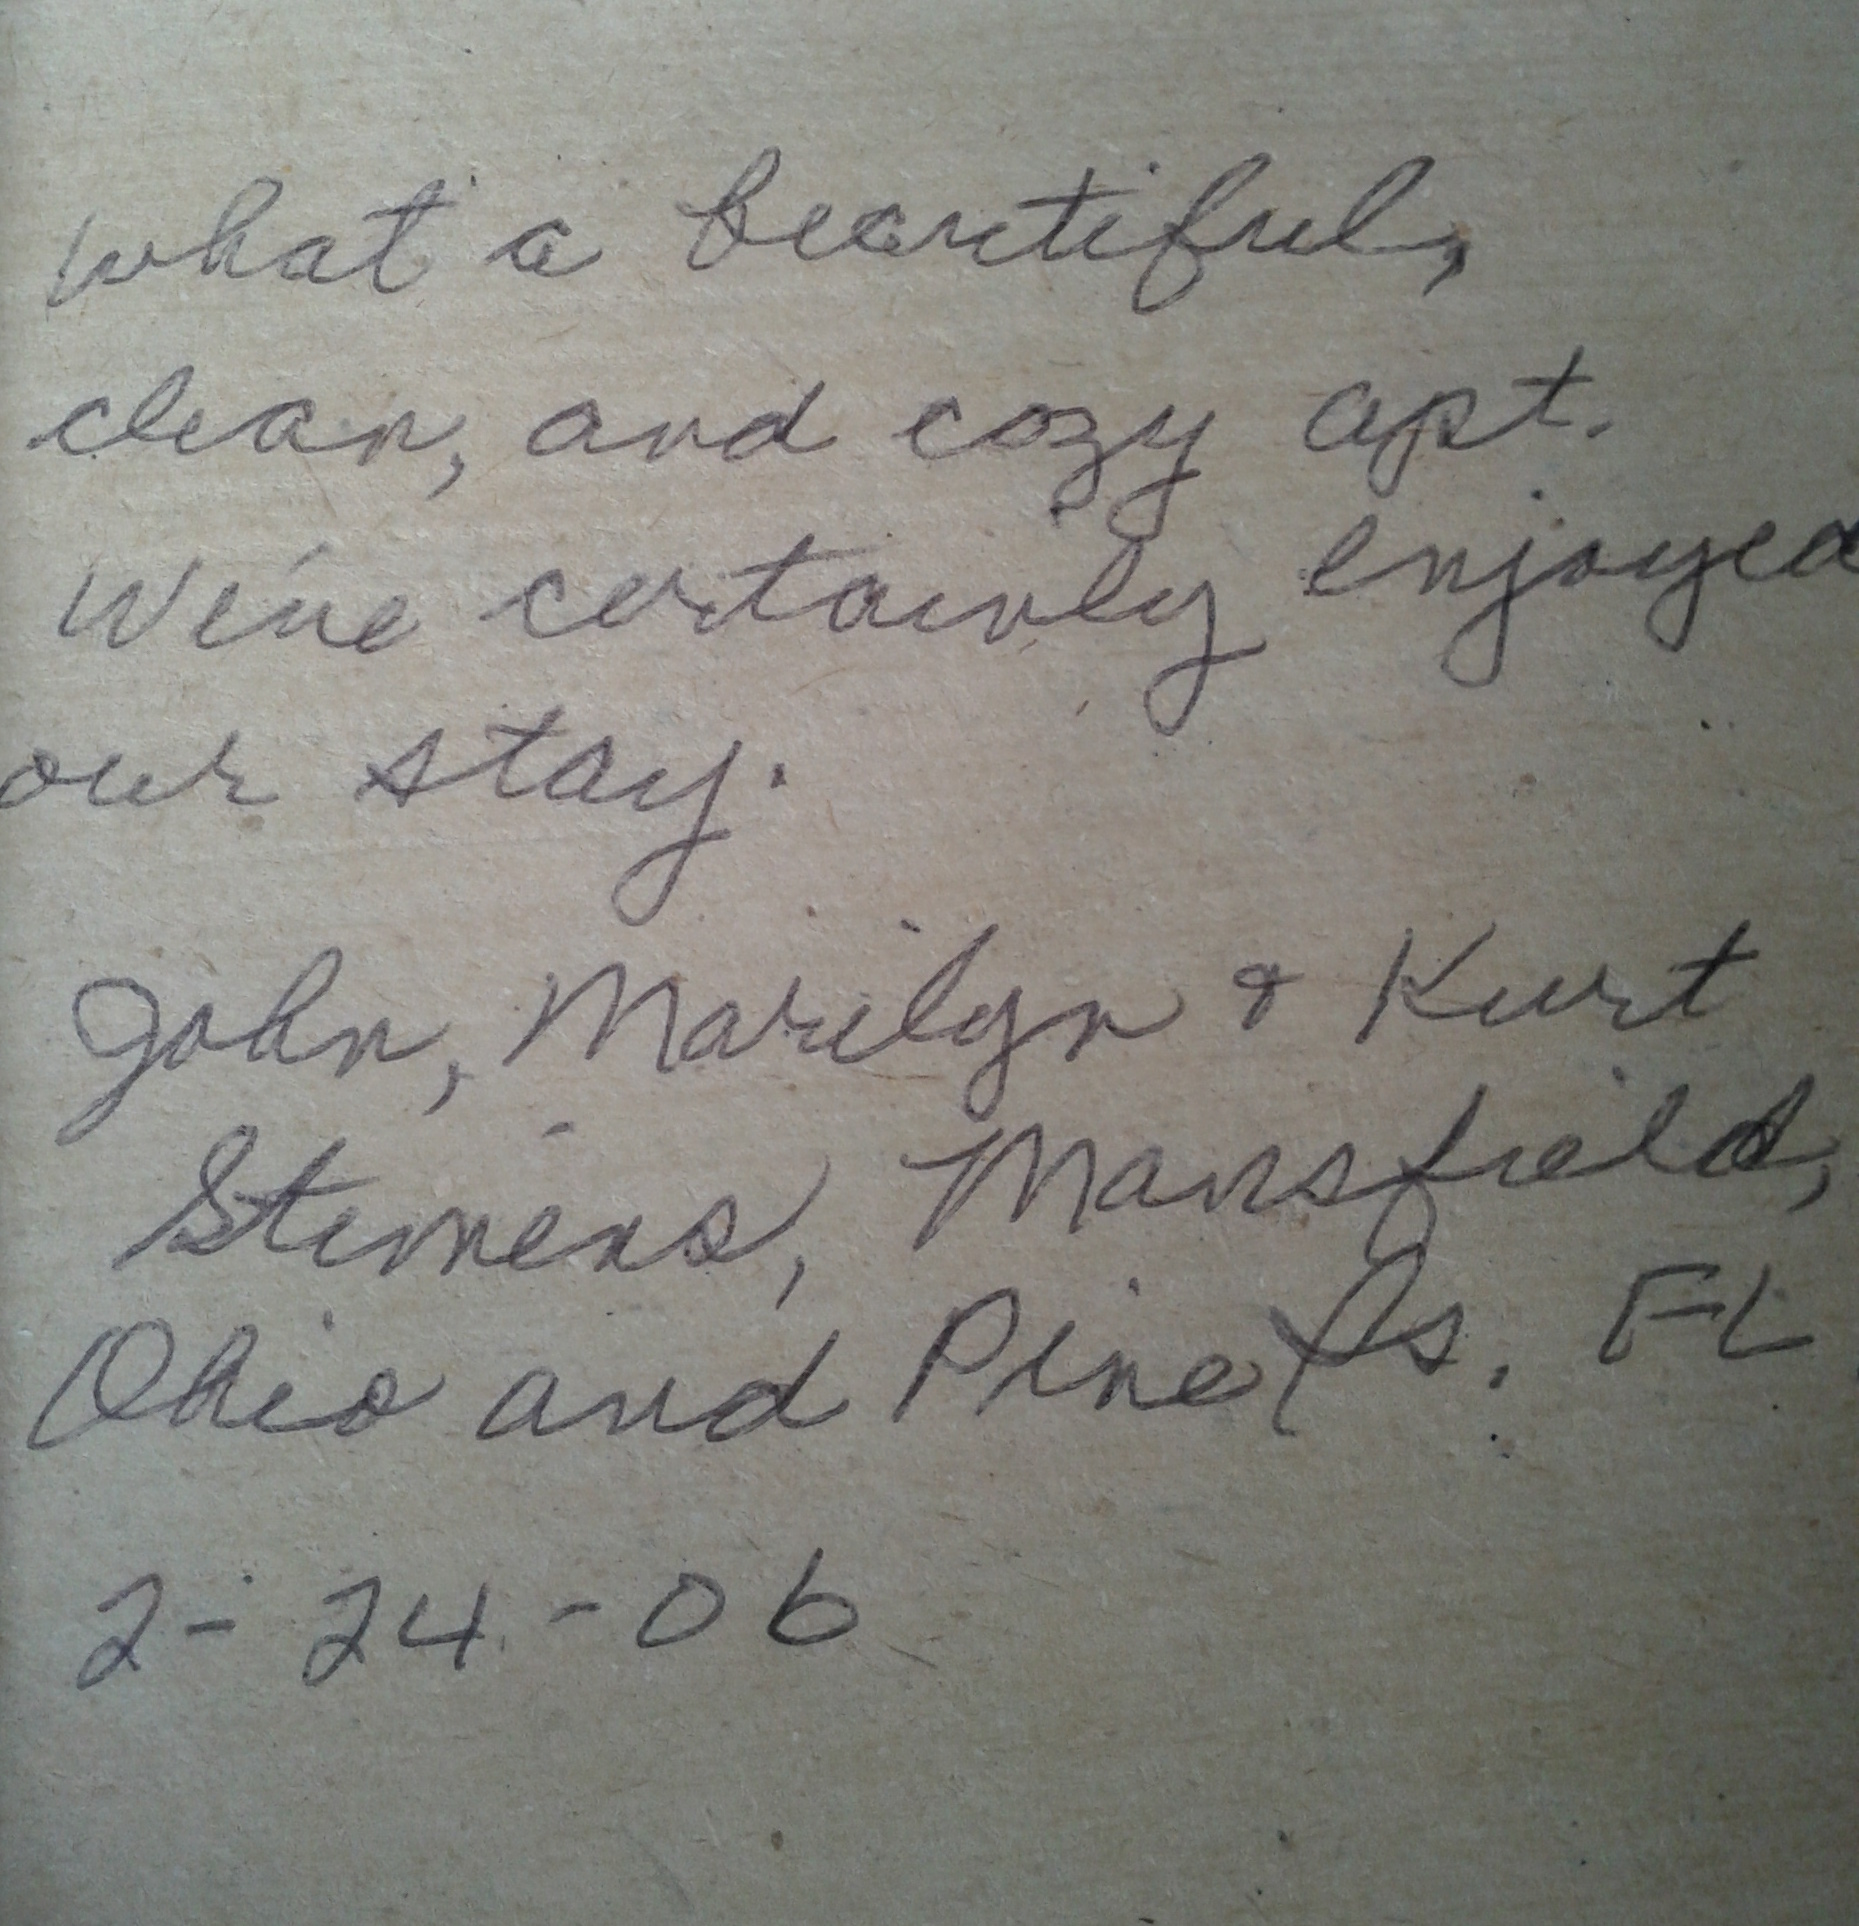 What a beautiful,
clean, and cozy apt.
We've certainly enjoyed
our stay.
John, Marilyn & Kurt
Mansfield,
Ohio and FL
2-24-06